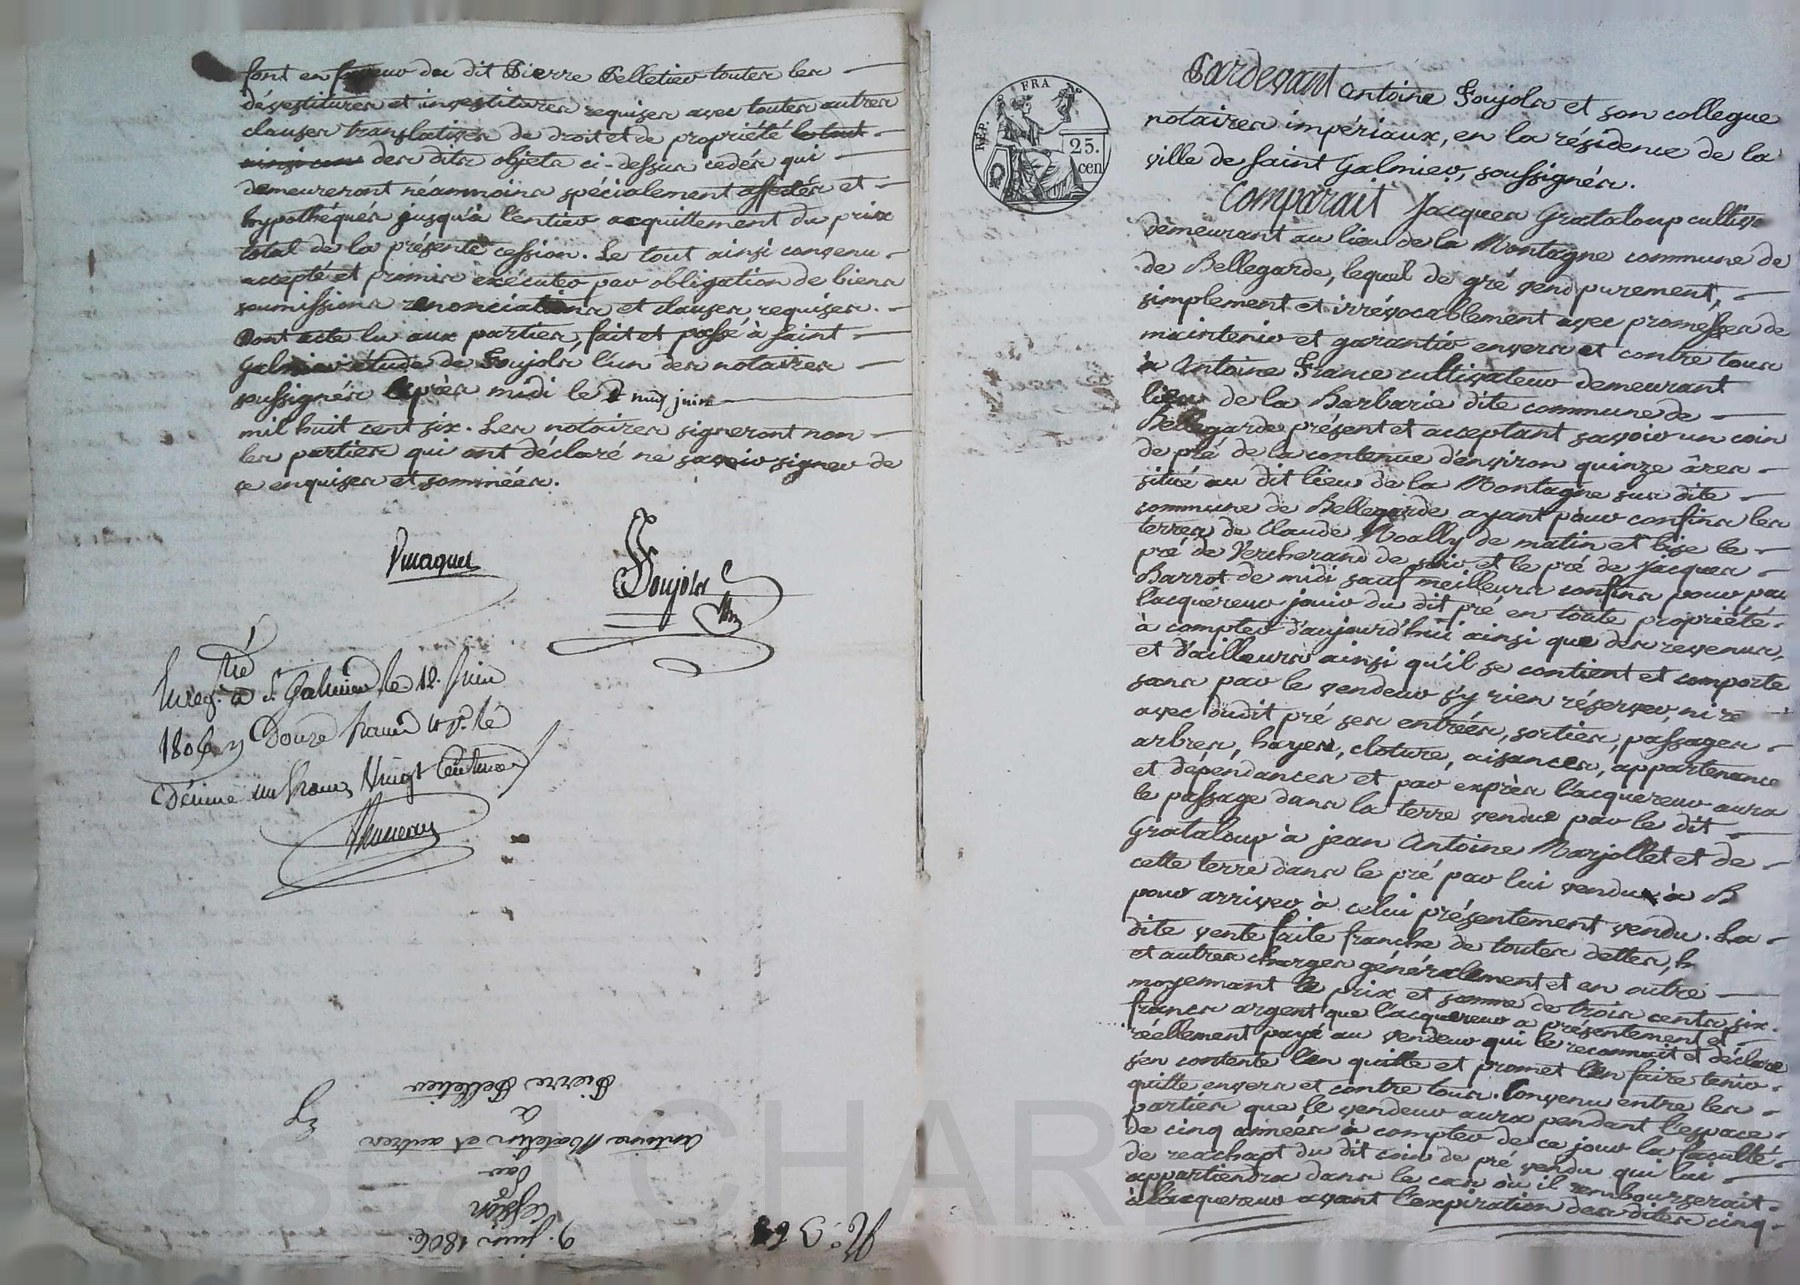 font en faveur du dit Pierre Pelletier toutes les
dévestitures et investitures requises avec toutes autres
clauses translatives de droit et de propriété le tout
ainsi con des dits objets ci-dessus cedés qui
demeureront néammoins spécialement affectés et
hypothéqués jusqu'à l'entier acquittement du prix
total de la présente cession. Le tout ainsi convenu
accepté et promis exécuter par obligation de biens
soumissions renonciations et clauses requises.
Dont acte lu aux parties, fait et passé à Saint
Galmier étude de Soujols l'un des notaires
soussignés après midi le neuf juin
mil huit cent six. Les notaires signeront non
les parties qui ont déclaré ne savoir signer de
ce enquises et sommées.
Soujols
Enreg.tré à St Galmier le 12. Juin
1806 Douze francs
Décime un franc Vingt Centimes
N.º
9. juin 1806.
Cession
Par
Antoine Matelin et autres
à
Pierre Pelletier
REP. FRA
25.
cen
Pardevant Antoine Soujols et son collegue
notaires impériaux, en la résidence de la
ville de Saint Galmier, soussignés.
Comparait Jacques Grataloup cultiv
demeurant au lieu de la Montagne commune de
de Bellegarde, lequel de gré vend purement,
simplement et irrévocablement avec promesses de
maintenir et garantir envers et contre tous
à Antoine France cultivateur demeurant
lieu de la Barbarie dite commune de
Bellegarde présent et acceptant savoir un coin
de pré de la contenue d'environ quinze âres
situé au dit lieu de la Montagne sus dite
commune de Bellegarde ayant pour confins les
terres de Claude Noally de matin et bise le
pré de Vercherand de soir et le pré de Jacques
Barrot de midi sauf meilleurs confins pour par
l'acquéreur jouir du dit pré en toute propriété
à compter d'aujourd'hui ainsi que des revenus,
et d'ailleurs ainsi qu'il se contient et comporte
sans par le vendeur s'y rien réserver, ni re
avec dudit pré ses entrées, sorties, passages
arbres, hayes, cloture, aisances, appartenance
et dépendances et par exprès l'acquereur aura
le passage dans la terre vendue par le dit
Grataloup à jean Antoine Marjollet et de
cette terre dans le pré par lui vendu à B
pour arriver à celui présentement vendu. La
dite vente faite franche de toutes dettes, h
et autres charges généralement et en outre
moyennant le prix et somme de trois cents six
francs argent que l'acquereur a présentement et
réellement payé au vendeur qui le reconnait et déclare
s'en contente l'en quitte et promet l'en faire tenir
quitte envers et contre tous. Convenu entre les
parties que le vendeur aura pendant l'espace
de cinq années à compter de ce jour la faculté
de reachapt du dit coin de pré vendu qui lui
appartiendra dans le cas où il rembourserait
à l'acquereur avant l'expiration des dites cinq